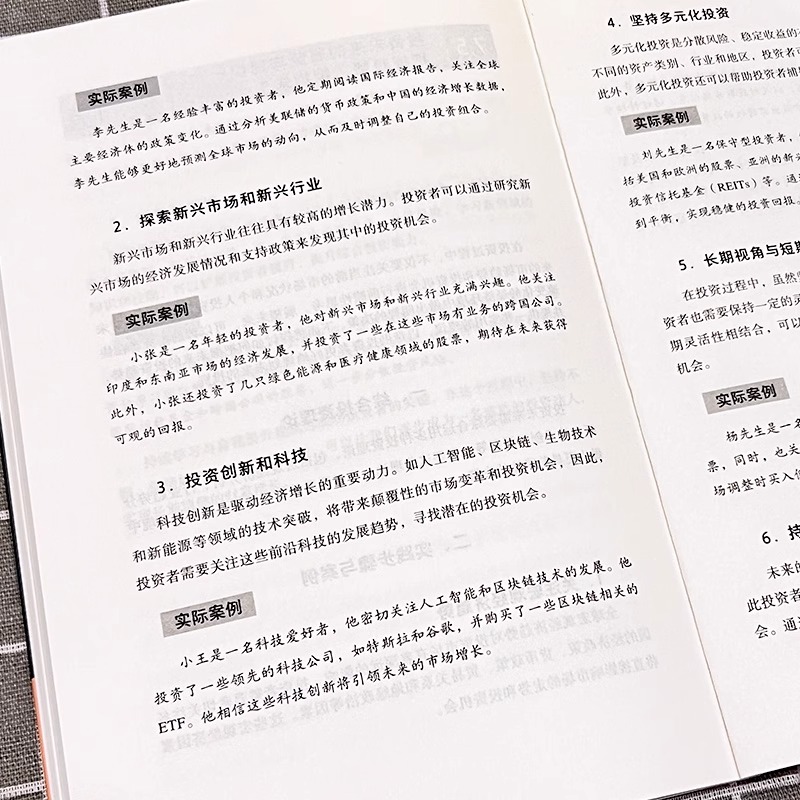 实际案例
李先生是一名经验丰富的投资者，他定期阅读国际经济报告，关注全球
主要经济体的政策变化。通过分析美联储的货币政策和中国的经济增长数据，
李先生能够更好地预测全球市场的动向，从而及时调整自己的投资组合。
2．探索新兴市场和新兴行业
新兴市场和新兴行业往往具有较高的增长潜力。投资者可以通过研究新
兴市场的经济发展情况和支持政策来发现其中的投资机会。
实际案例
小张是一名年轻的投资者，他对新兴市场和新兴行业充满兴趣。他关注
印度和东南亚市场的经济发展，并投资了一些在这些市场有业务的跨国公司。
此外，小张还投资了几只绿色能源和医疗健康领域的股票，期待在未来获得
可观的回报。
3．投资创新和科技
科技创新是驱动经济增长的重要动力。如人工智能、区块链、生物技术
和新能源等领域的技术突破，将带来颠覆性的市场变革和投资机会，因此，
投资者需要关注这些前沿科技的发展趋势，寻找潜在的投资机会。
实际案例
小王是一名科技爱好者，他密切关注人工智能和区块链技术的发展。他
投资了一些领先的科技公司，如特斯拉和谷歌，并购买了一些区块链相关的
ETF。他相信这些科技创新将引领未来的市场增长。
4．坚持多元化投资
多元化投资是分散风险、稳定收益的
不同的资产类别、行业和地区，投资者
此外，多元化投资还可以帮助投资者捕
实际案例
刘先生是一名保守型投资者，
括美国和欧洲的股票、亚洲的新
投资信托基金（REITs）等。通
到平衡，实现稳健的投资回报。
5．长期视角与短
在投资过程中，虽然
资者也需要保持一定的灵
期灵活性相结合，可以
机会。
实际案例
杨先生是一名
票，同时，也关
场调整时买入
6．持
未来的
此投资者
会。通